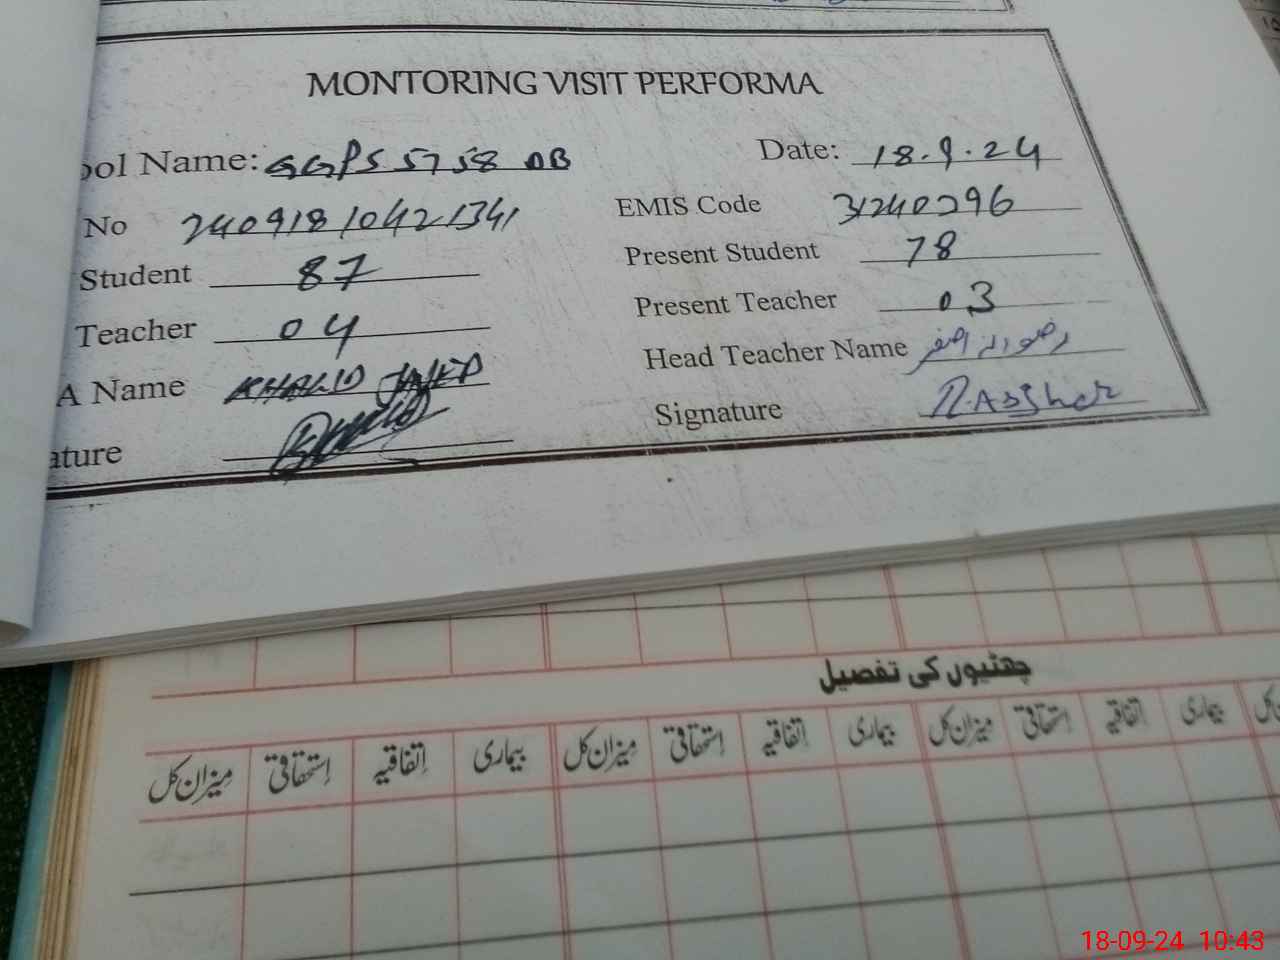 MONTORING VISIT PERFORMA
ool Name: GGPS 57 58 DB Date: 18.9.24
No 24091810421341 EMIS Code 31240296
Student 87 Present Student 78
Teacher 04 Present Teacher 03
A Name KHALID JAVED Head Teacher Name رضوانہ اصغر
ature Signature R.Asghar
چھٹیوں کی تفصیل
میزان کل اِستحقاقی اِتفاقیہ بیماری میزان کل اِستحقاقی اِتفاقیہ بیماری میزان کل اِستحقاقی اِتفاقیہ بیماری
18-09-24 10:43